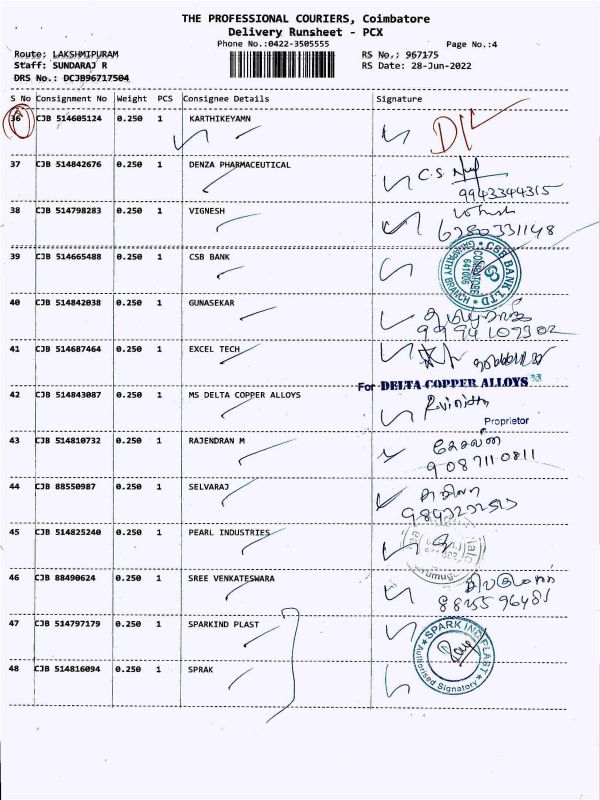 THE PROFESSIONAL COURIERS, Coimbatore
Delivery Runsheet - PCX
Phone No.:0422-3505555 Page No.:4
Route: LAKSHMIPURAM RS No.: 967175
Staff: SUNDARAJ R RS Date: 28-Jun-2022
DRS No.: DCJB96717504
S No Consignment No Weight PCS Consignee Details Signature
36 CJB 514605124 0.250 1 KARTHIKEYAMN
37 CJB 514842676 0.250 1 DENZA PHARMACEUTICAL C.S
9943344315
38 CJB 514798283 0.250 1 VIGNESH
6280331148
39 CJB 514665488 0.250 1 CSB BANK
CSB BANK LTD
GANAPATHY BRANCH
COIMBATORE
641006
40 CJB 514842038 0.250 1 GUNASEKAR
9994107302
41 CJB 514687464 0.250 1 EXCEL TECH
For DELTA COPPER ALLOYS
42 CJB 514843087 0.250 1 MS DELTA COPPER ALLOYS
Proprietor
43 CJB 514810732 0.250 1 RAJENDRAN M
9087110811
44 CJB 88550987 0.250 1 SELVARAJ
45 CJB 514825240 0.250 1 PEARL INDUSTRIES
46 CJB 88490624 0.250 1 SREE VENKATESWARA
47 CJB 514797179 0.250 1 SPARKIND PLAST
SPARK IND PLAST
Authorised Signatory
48 CJB 514816094 0.250 1 SPRAK